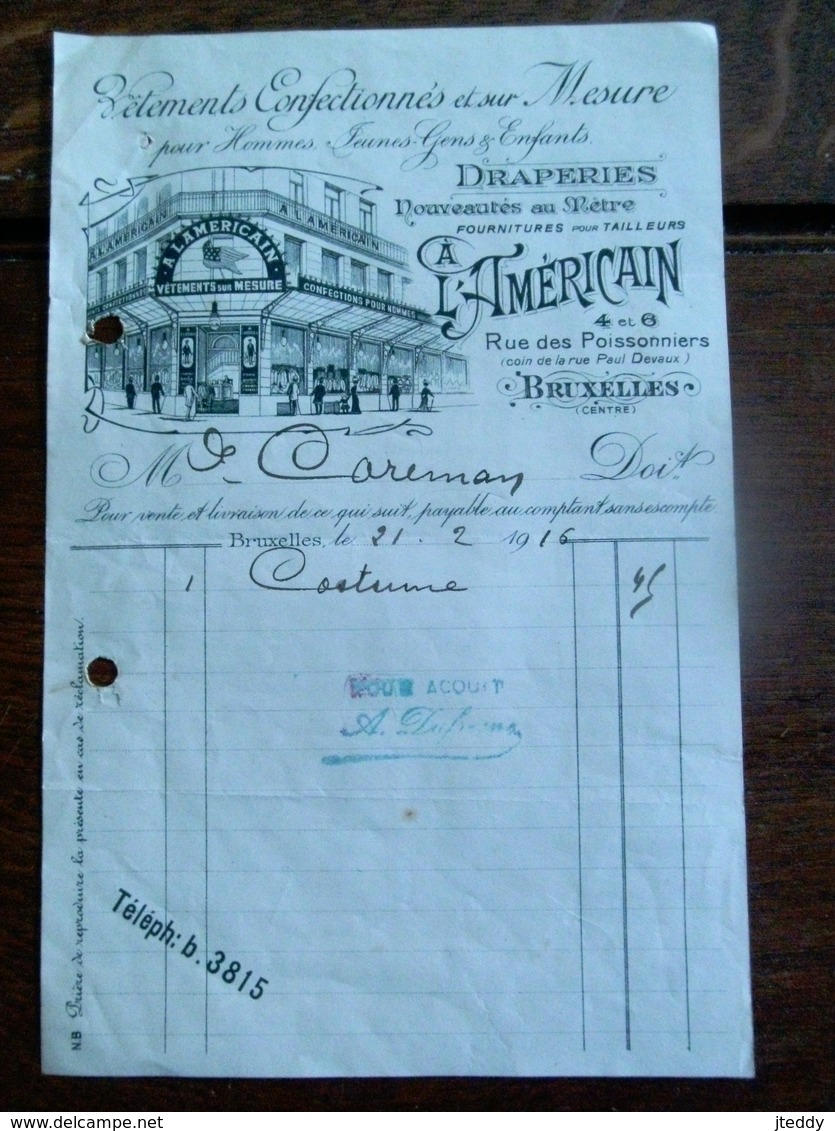 Vêtements Confectionnés et sur Mesure
pour Hommes, Jeunes-Gens & Enfants.
DRAPERIES
Nouveautés au Mètre
FOURNITURES POUR TAILLEURS
À L'AMÉRICAIN
4 et 6
Rue des Poissonniers
(coin de la rue Paul Devaux)
BRUXELLES
(CENTRE)
A L'AMERICAIN
A L'AMERICAIN
A L'AMERICAIN
VÊTEMENTS SUR MESURE
CONFECTIONS POUR HOMMES
M Coreman Doit
Pour vente et livraison de ce qui suit, payable au comptant sans escompte
Bruxelles, le 21 - 2 1916
1 Costume 45
POUR ACQUIT
Téléph: b. 3815
N.B Prière de reproduire la présente en cas de réclamation.
jteddy